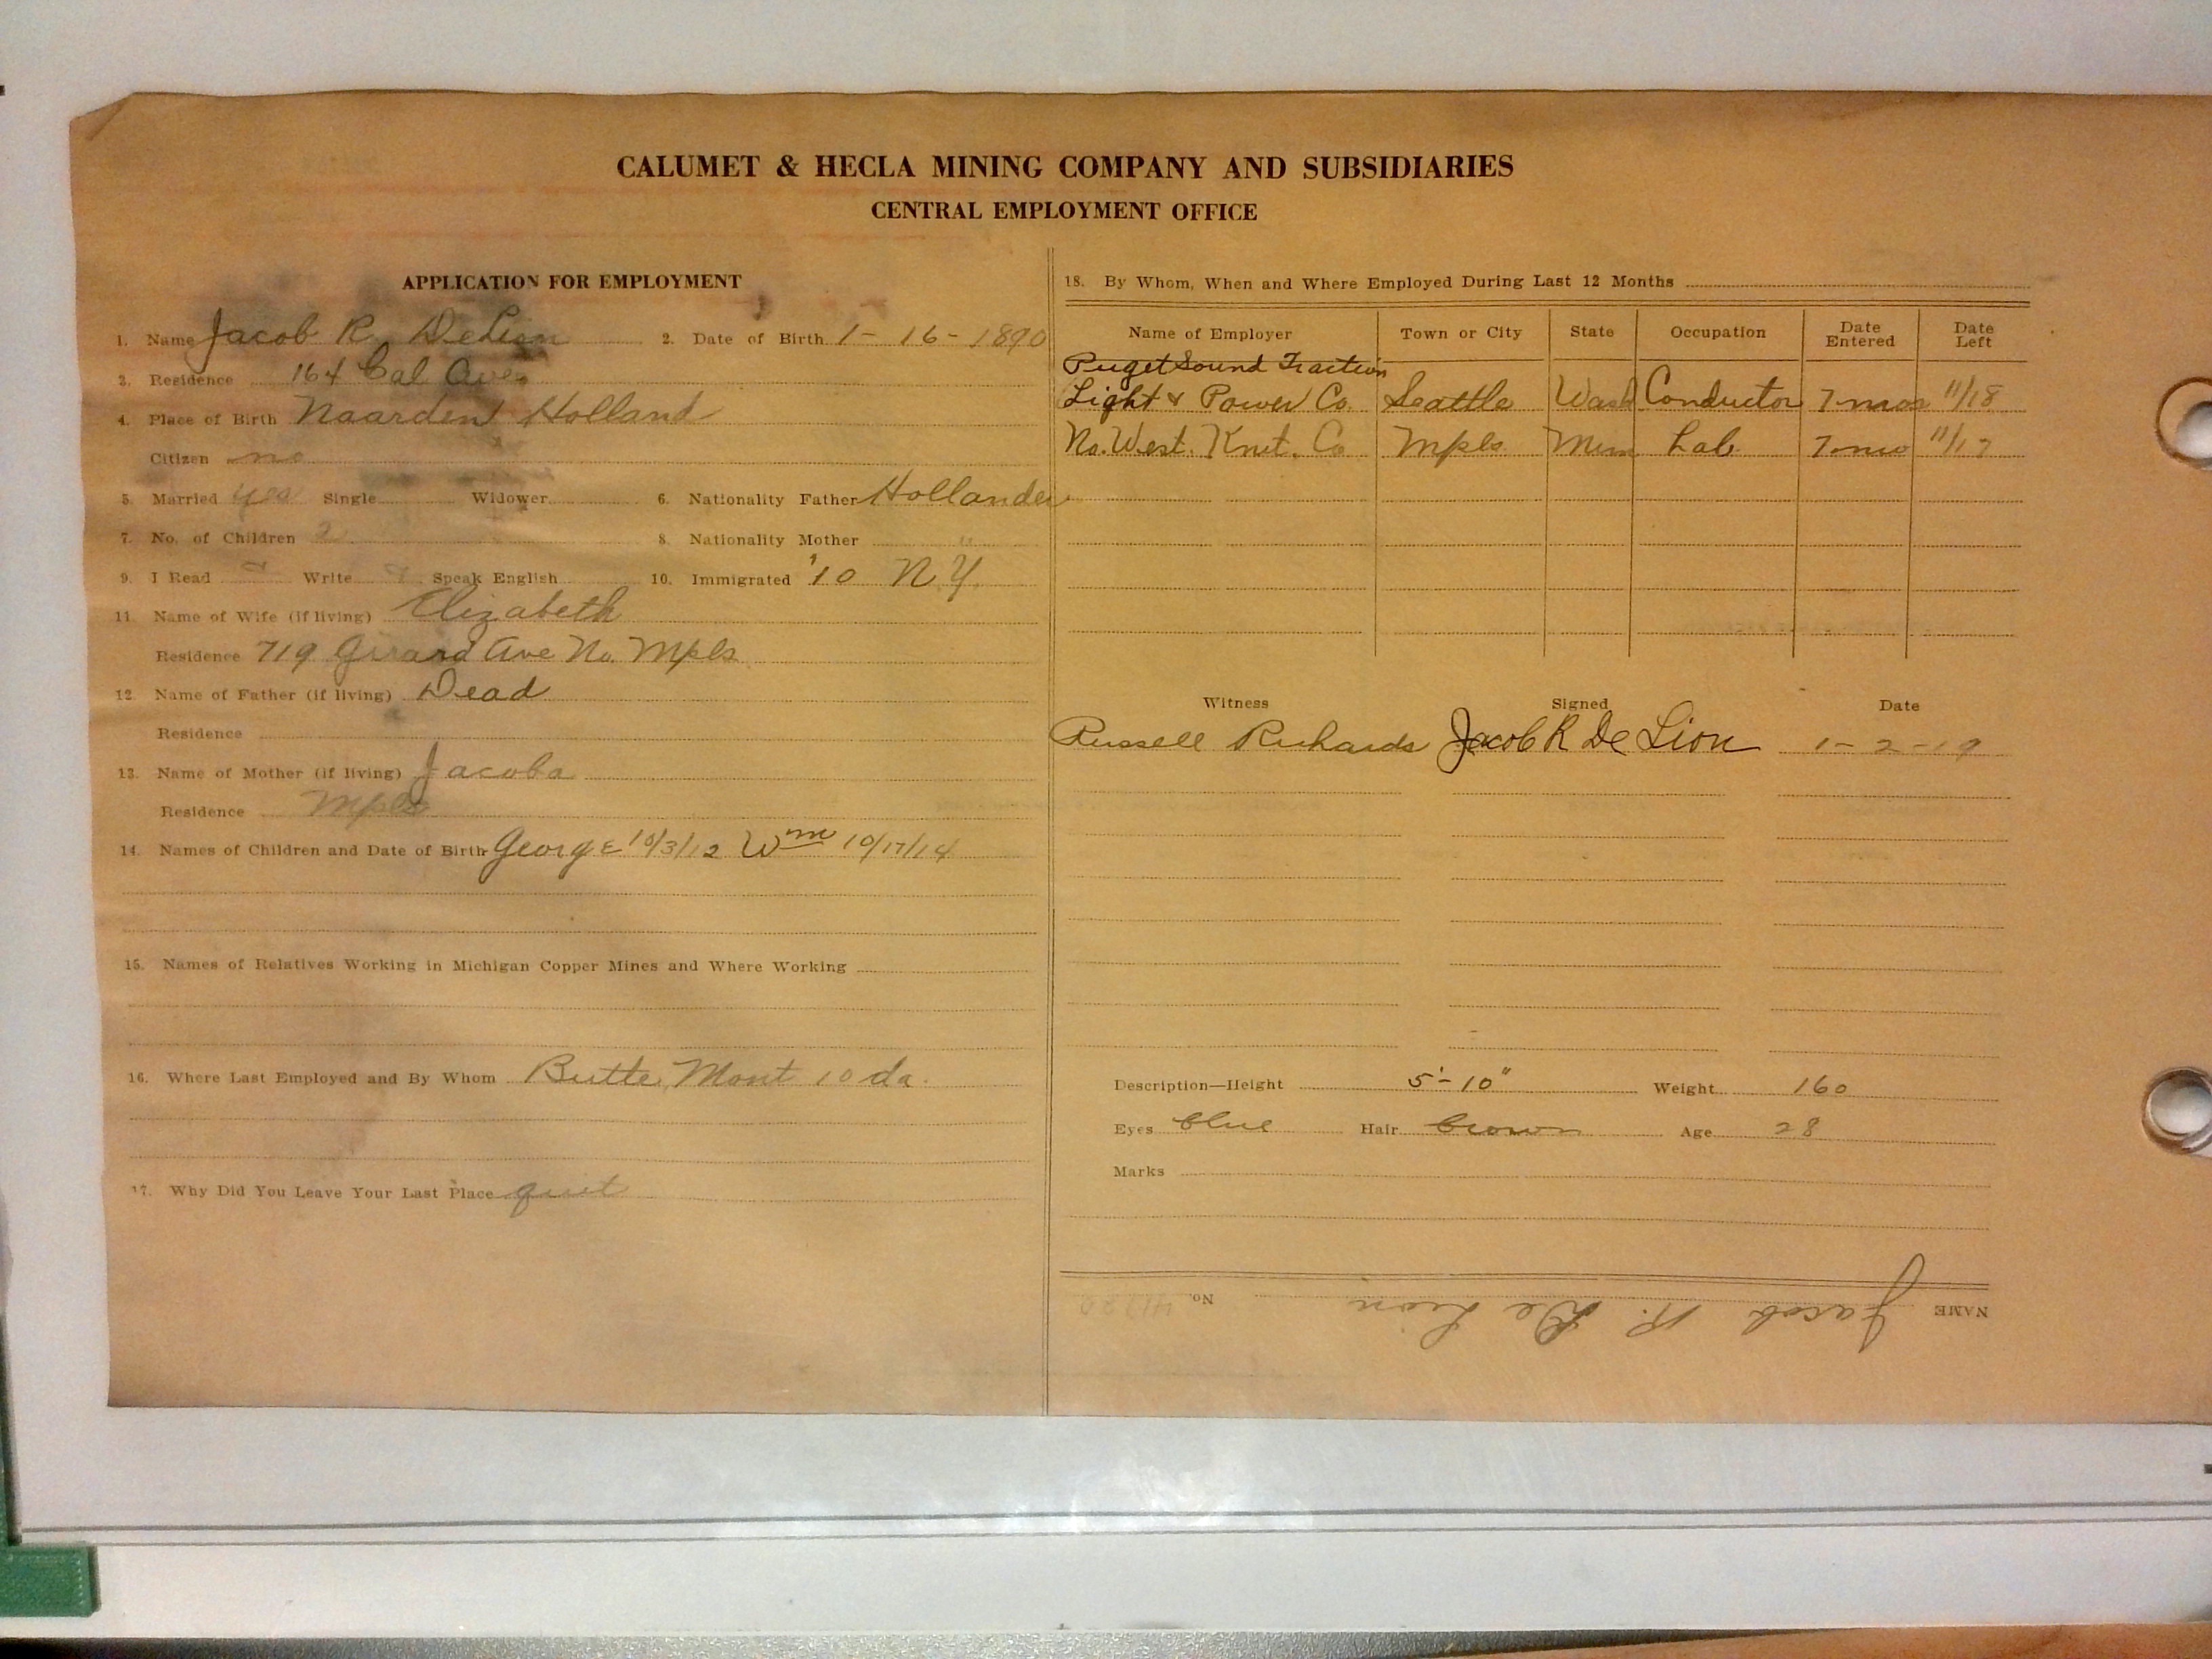 CALUMET & HECLA MINING COMPANY AND SUBSIDIARIES
CENTRAL EMPLOYMENT OFFICE
APPLICATION FOR EMPLOYMENT
1. Name Jacob R. DeLion 2. Date of Birth 1-16-1890
3. Residence 164 Cal Ave
4. Place of Birth Naarden Holland
Citizen no
5. Married yes Single Widower 6. Nationality Father Hollander
7. No. of Children 2 8. Nationality Mother "
9. I Read Write Speak English 10. Immigrated '10 N.Y.
11. Name of Wife (if living) Elizabeth
Residence 719 Girard Ave No. Mpls
12. Name of Father (if living) Dead
Residence
13. Name of Mother (if living) Jacoba
Residence Mpls
14. Names of Children and Date of Birth George 10/3/12 Wm 10/17/14
15. Names of Relatives Working in Michigan Copper Mines and Where Working
16. Where Last Employed and By Whom Butte, Mont 10 da.
17. Why Did You Leave Your Last Place quit
18. By Whom, When and Where Employed During Last 12 Months
Name of Employer Town or City State Occupation Date Entered Date Left
Puget Sound Traction
Light & Power Co. Seattle Wash Conductor 7 mos 11/18
No. West. Knit. Co. Mpls. Minn Lab. 7 mo 11/17
Witness Signed Date
Russell Richards Jacob R De Lion 1-2-19
Description—Height 5'-10" Weight 160
Eyes blue Hair brown Age 28
Marks
NAME Jacob R. De Lion No.